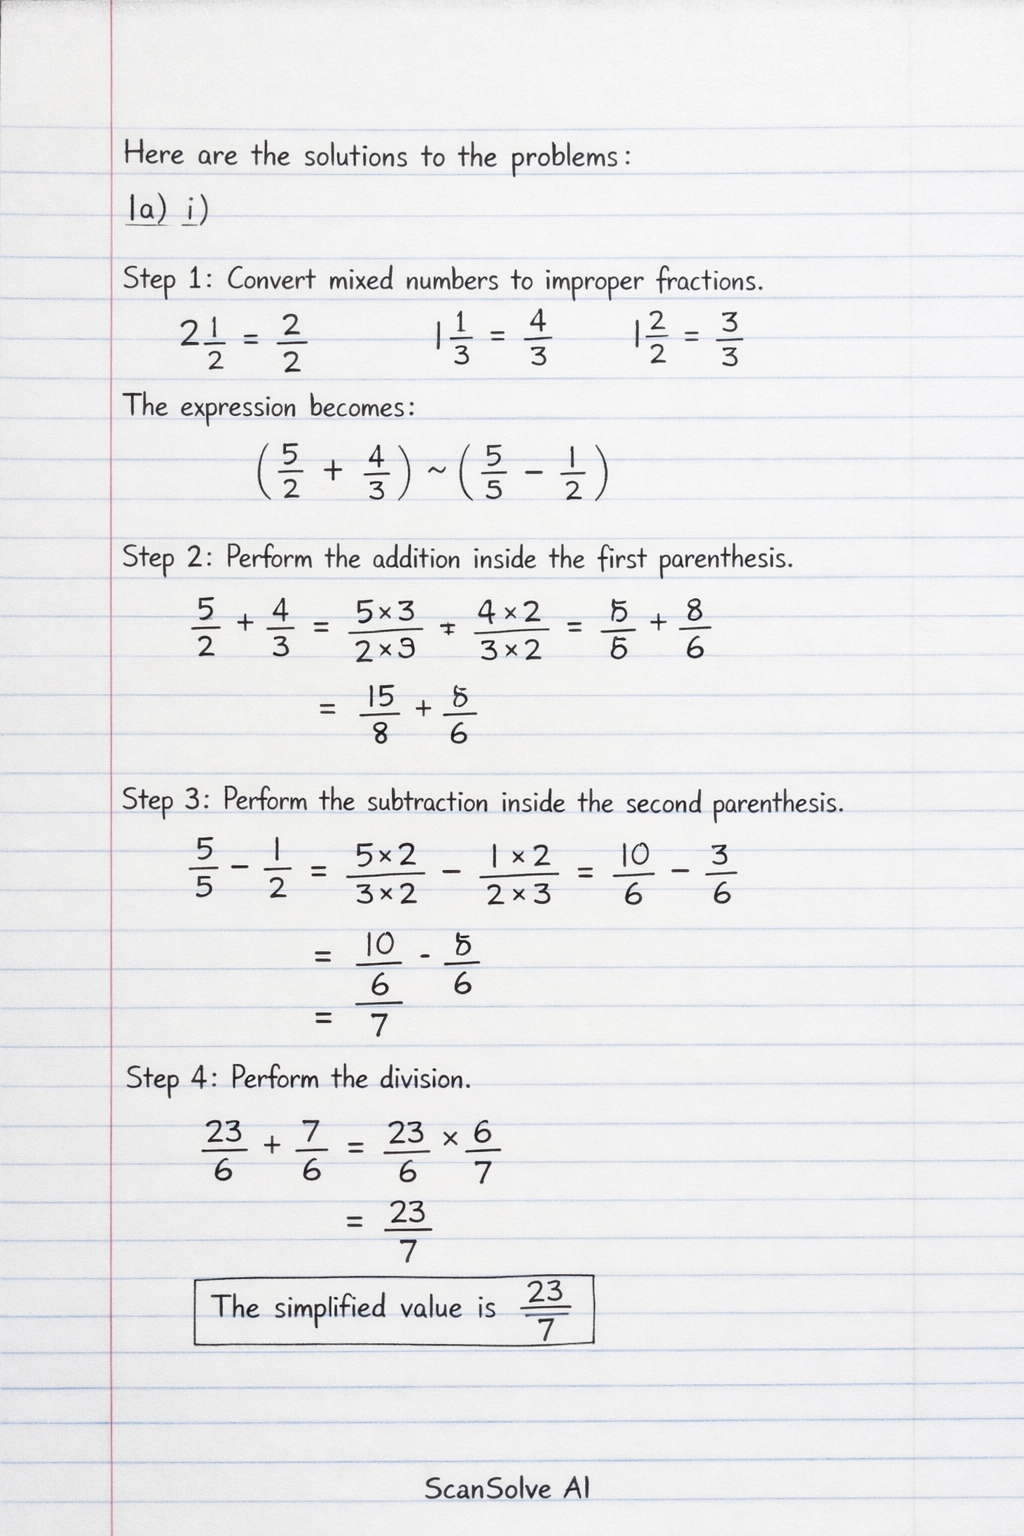 Here are the solutions to the problems:
1a) i)
Step 1: Convert mixed numbers to improper fractions.
2 1/2 = 2/2    1 1/3 = 4/3    1 2/2 = 3/3
The expression becomes:
(5/2 + 4/3) ~ (5/5 - 1/2)
Step 2: Perform the addition inside the first parenthesis.
5/2 + 4/3 = 5×3/2×9 + 4×2/3×2 = 5/5 + 8/6
= 15/8 + 8/6
Step 3: Perform the subtraction inside the second parenthesis.
5/5 - 1/2 = 5×2/3×2 - 1×2/2×3 = 10/6 - 3/6
= 10/6 - 5/6
= /7
Step 4: Perform the division.
23/6 + 7/6 = 23/6 × 6/7
= 23/7
The simplified value is 23/7
ScanSolve AI